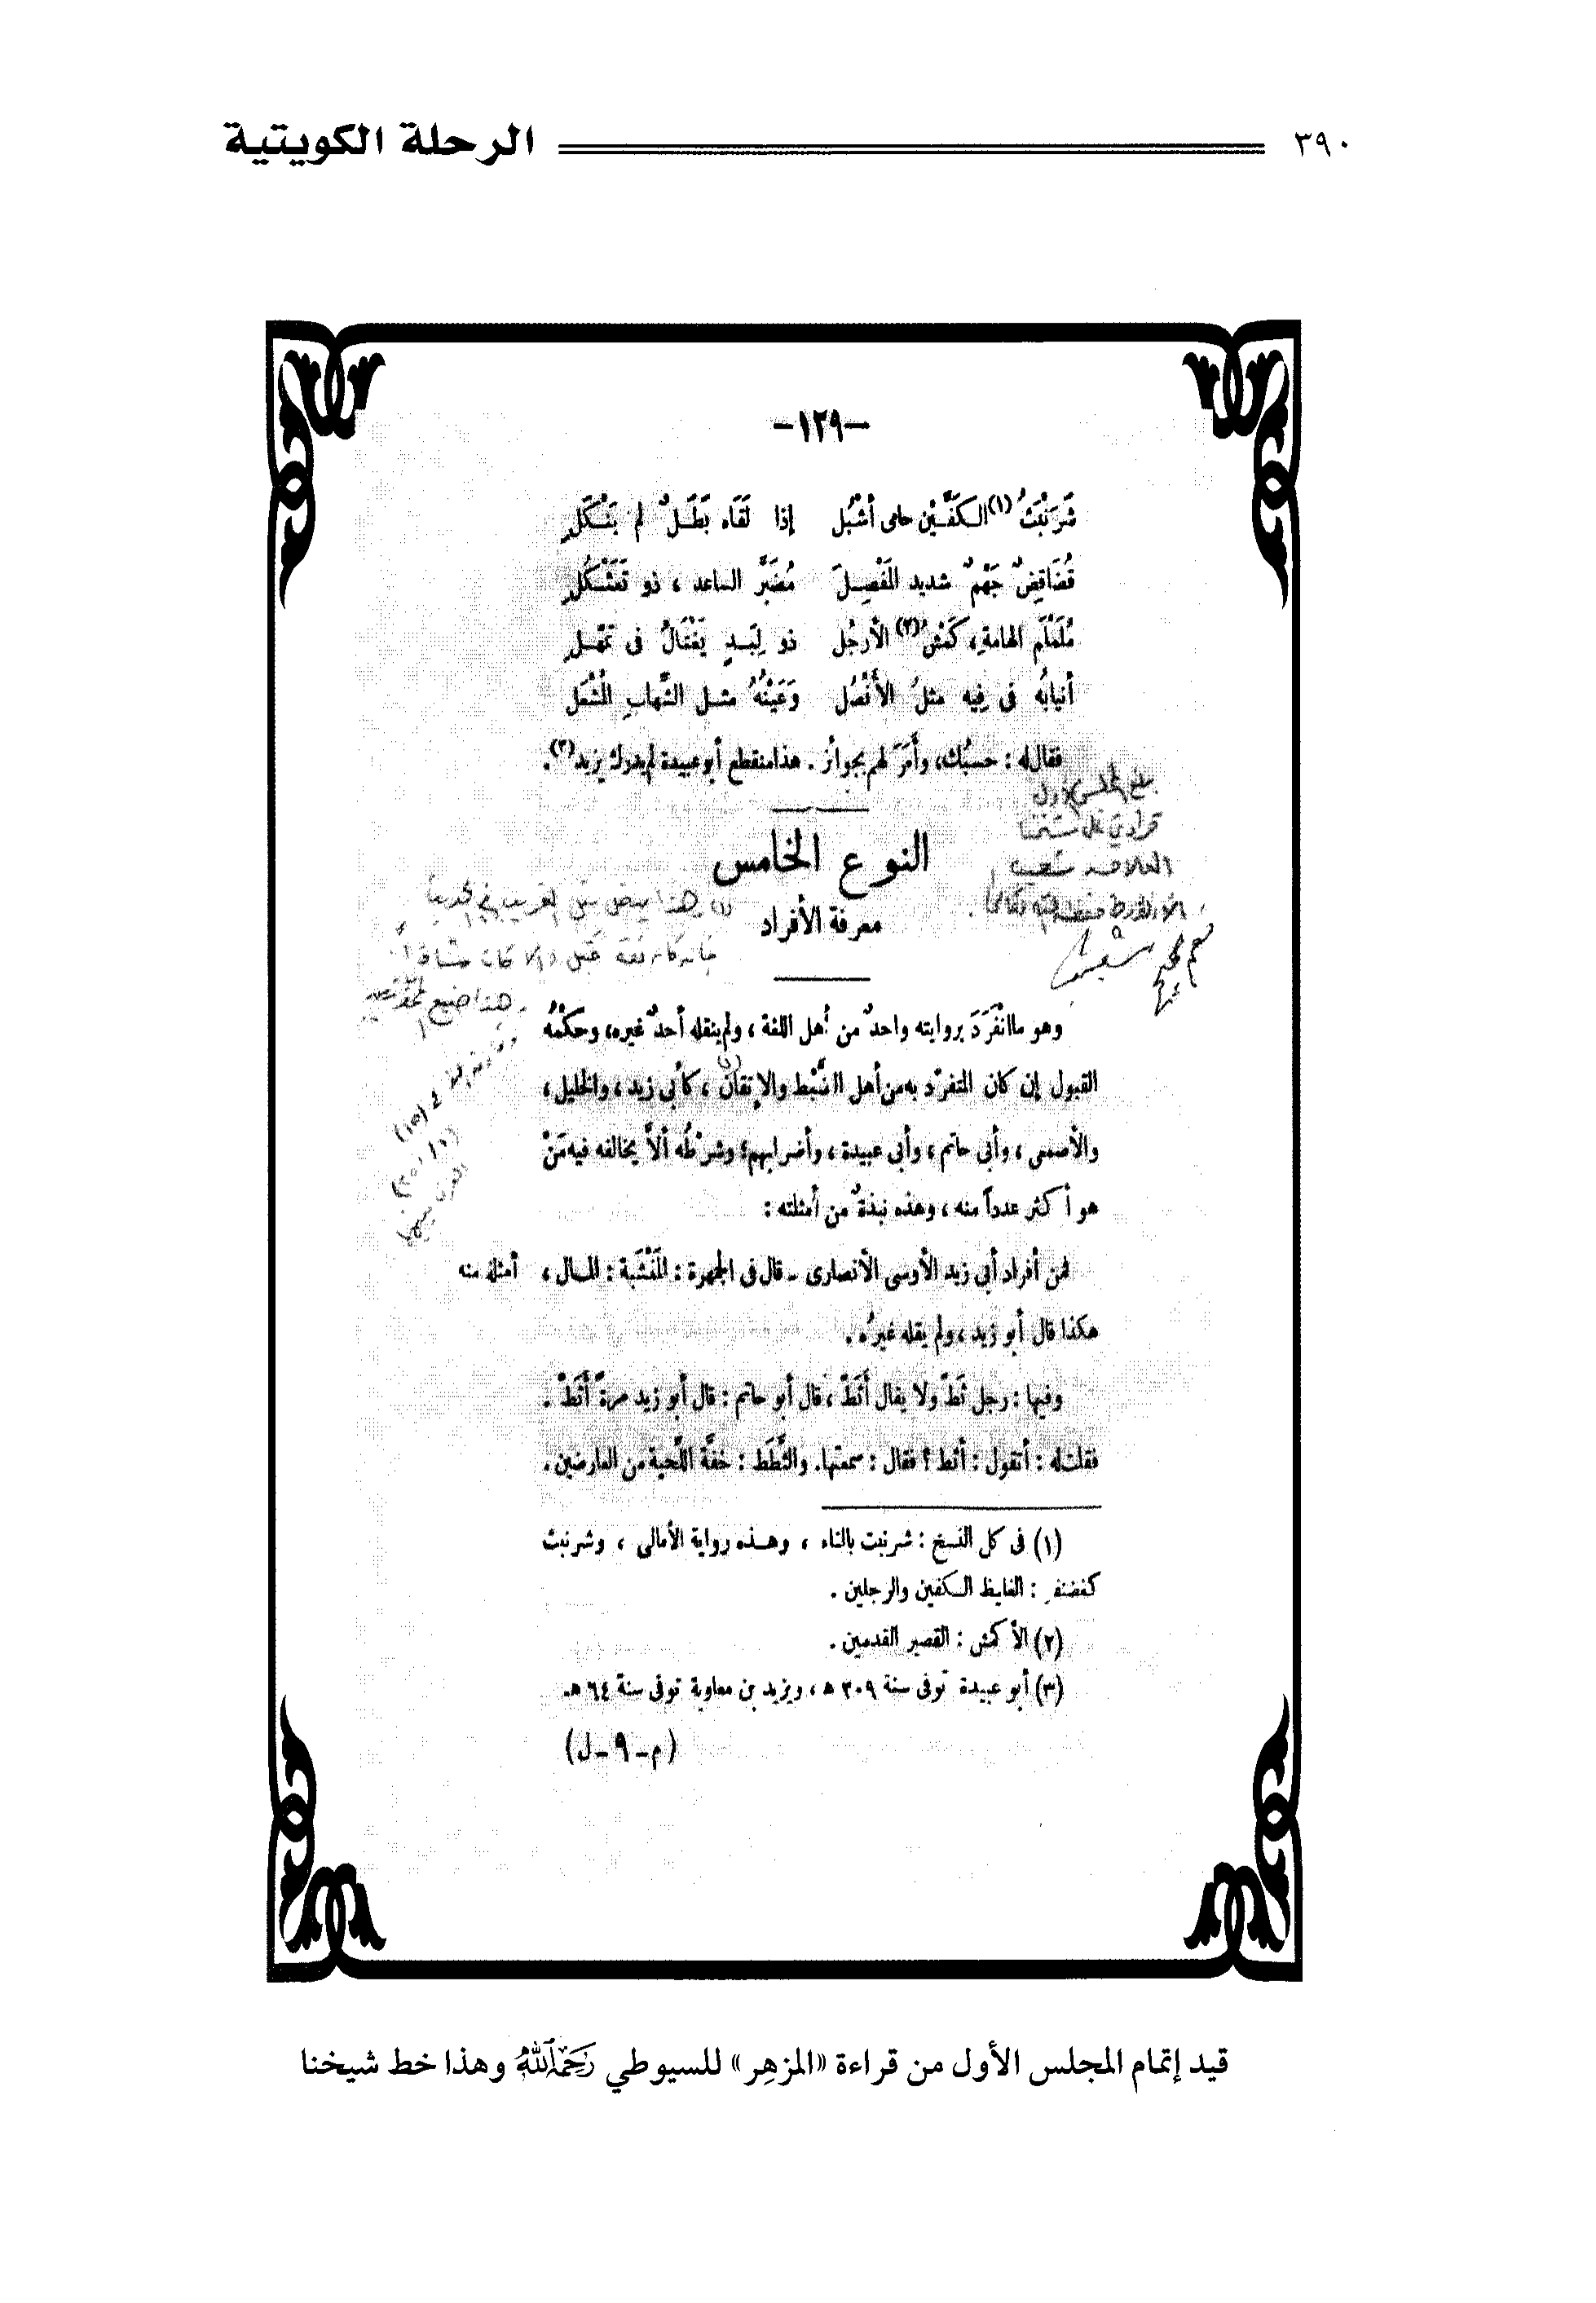 ٣٩٠ الرحلة الكويتية
-١٢٩-
شَرَنْبَثُ (١) الكَفَّيْن حامى أشْبُل إذا لَقَاه بَطَلٌ لم يَنْكَلِ
قُضَاقِضٌ جَهْمٌ شديد المَفْصِل مُضَبَّر الساعد ، ذو تَعَثْكُلِ
مُلَمْلَم الهامةِ، كَمْشُ (٢) الأرجُل ذو لِبَدٍ يَغْتَالُ فى تَمَهُّلِ
أنيابُه فى فِيه مثلُ الأَنْصُل وَعَيْنُهُ مثل الشِّهابِ المُشْعَل
فقال له : حسبُك، وأَمَرَ لهم بجوائز . هذا منقطع أبو عبيدة لم يدرك يزيد (٣).
بلغ المجلس الأول
قراءتي على شيخنا
العلامة شعيب
النوع الخامس
معرفة الأفراد
وهو ما انْفَرَدَ بروايته واحدٌ من أهل اللغة ، ولم ينقله أحدٌ غيره، وحكْمُه
القبول إن كان المتفرّد به من أهل الضَّبْط والإتقان ، كأبى زيد ، والخليل ،
والأصمعى ، وأبى حاتم ، وأبى عبيدة ، وأضرابهم؛ وشرْطُه ألاَّ يخالفه فيه مَنْ
هو أكثر عدداً منه ، وهذه نبذةٌ من أمثلته :
فمن أفراد أبى زيد الأوسى الأنصارى - قال فى الجمهرة : المَنْشَبة : المال ، أمثلة منه
هكذا قال أبو زيد ، ولم يقله غيرُه .
وفيها : رجل ثَطّ ولا يقال أَثَطّ ، قال أبو حاتم : قال أبو زيد مرةً أَثَطّ .
فقلت له : أتقول : أثط ؟ فقال : سمعتها. والثَّطَط : خفَّة اللِّحية من العارضين .
(١) فى كل النسخ : شرنبت بالتاء ، وهذه رواية الأمالى ، وشرنبث
كغضنفر : الغليظ الكفين والرجلين .
(٢) الأكمش : القصير القدمين .
(٣) أبو عبيدة توفى سنة ٢٠٩ هـ ، ويزيد بن معاوية توفى سنة ٦٤ هـ.
(م - ٩ - ل)
قيد إتمام المجلس الأول من قراءة «المزهِر» للسيوطي رَحِمَهُ اللَّهُ وهذا خط شيخنا